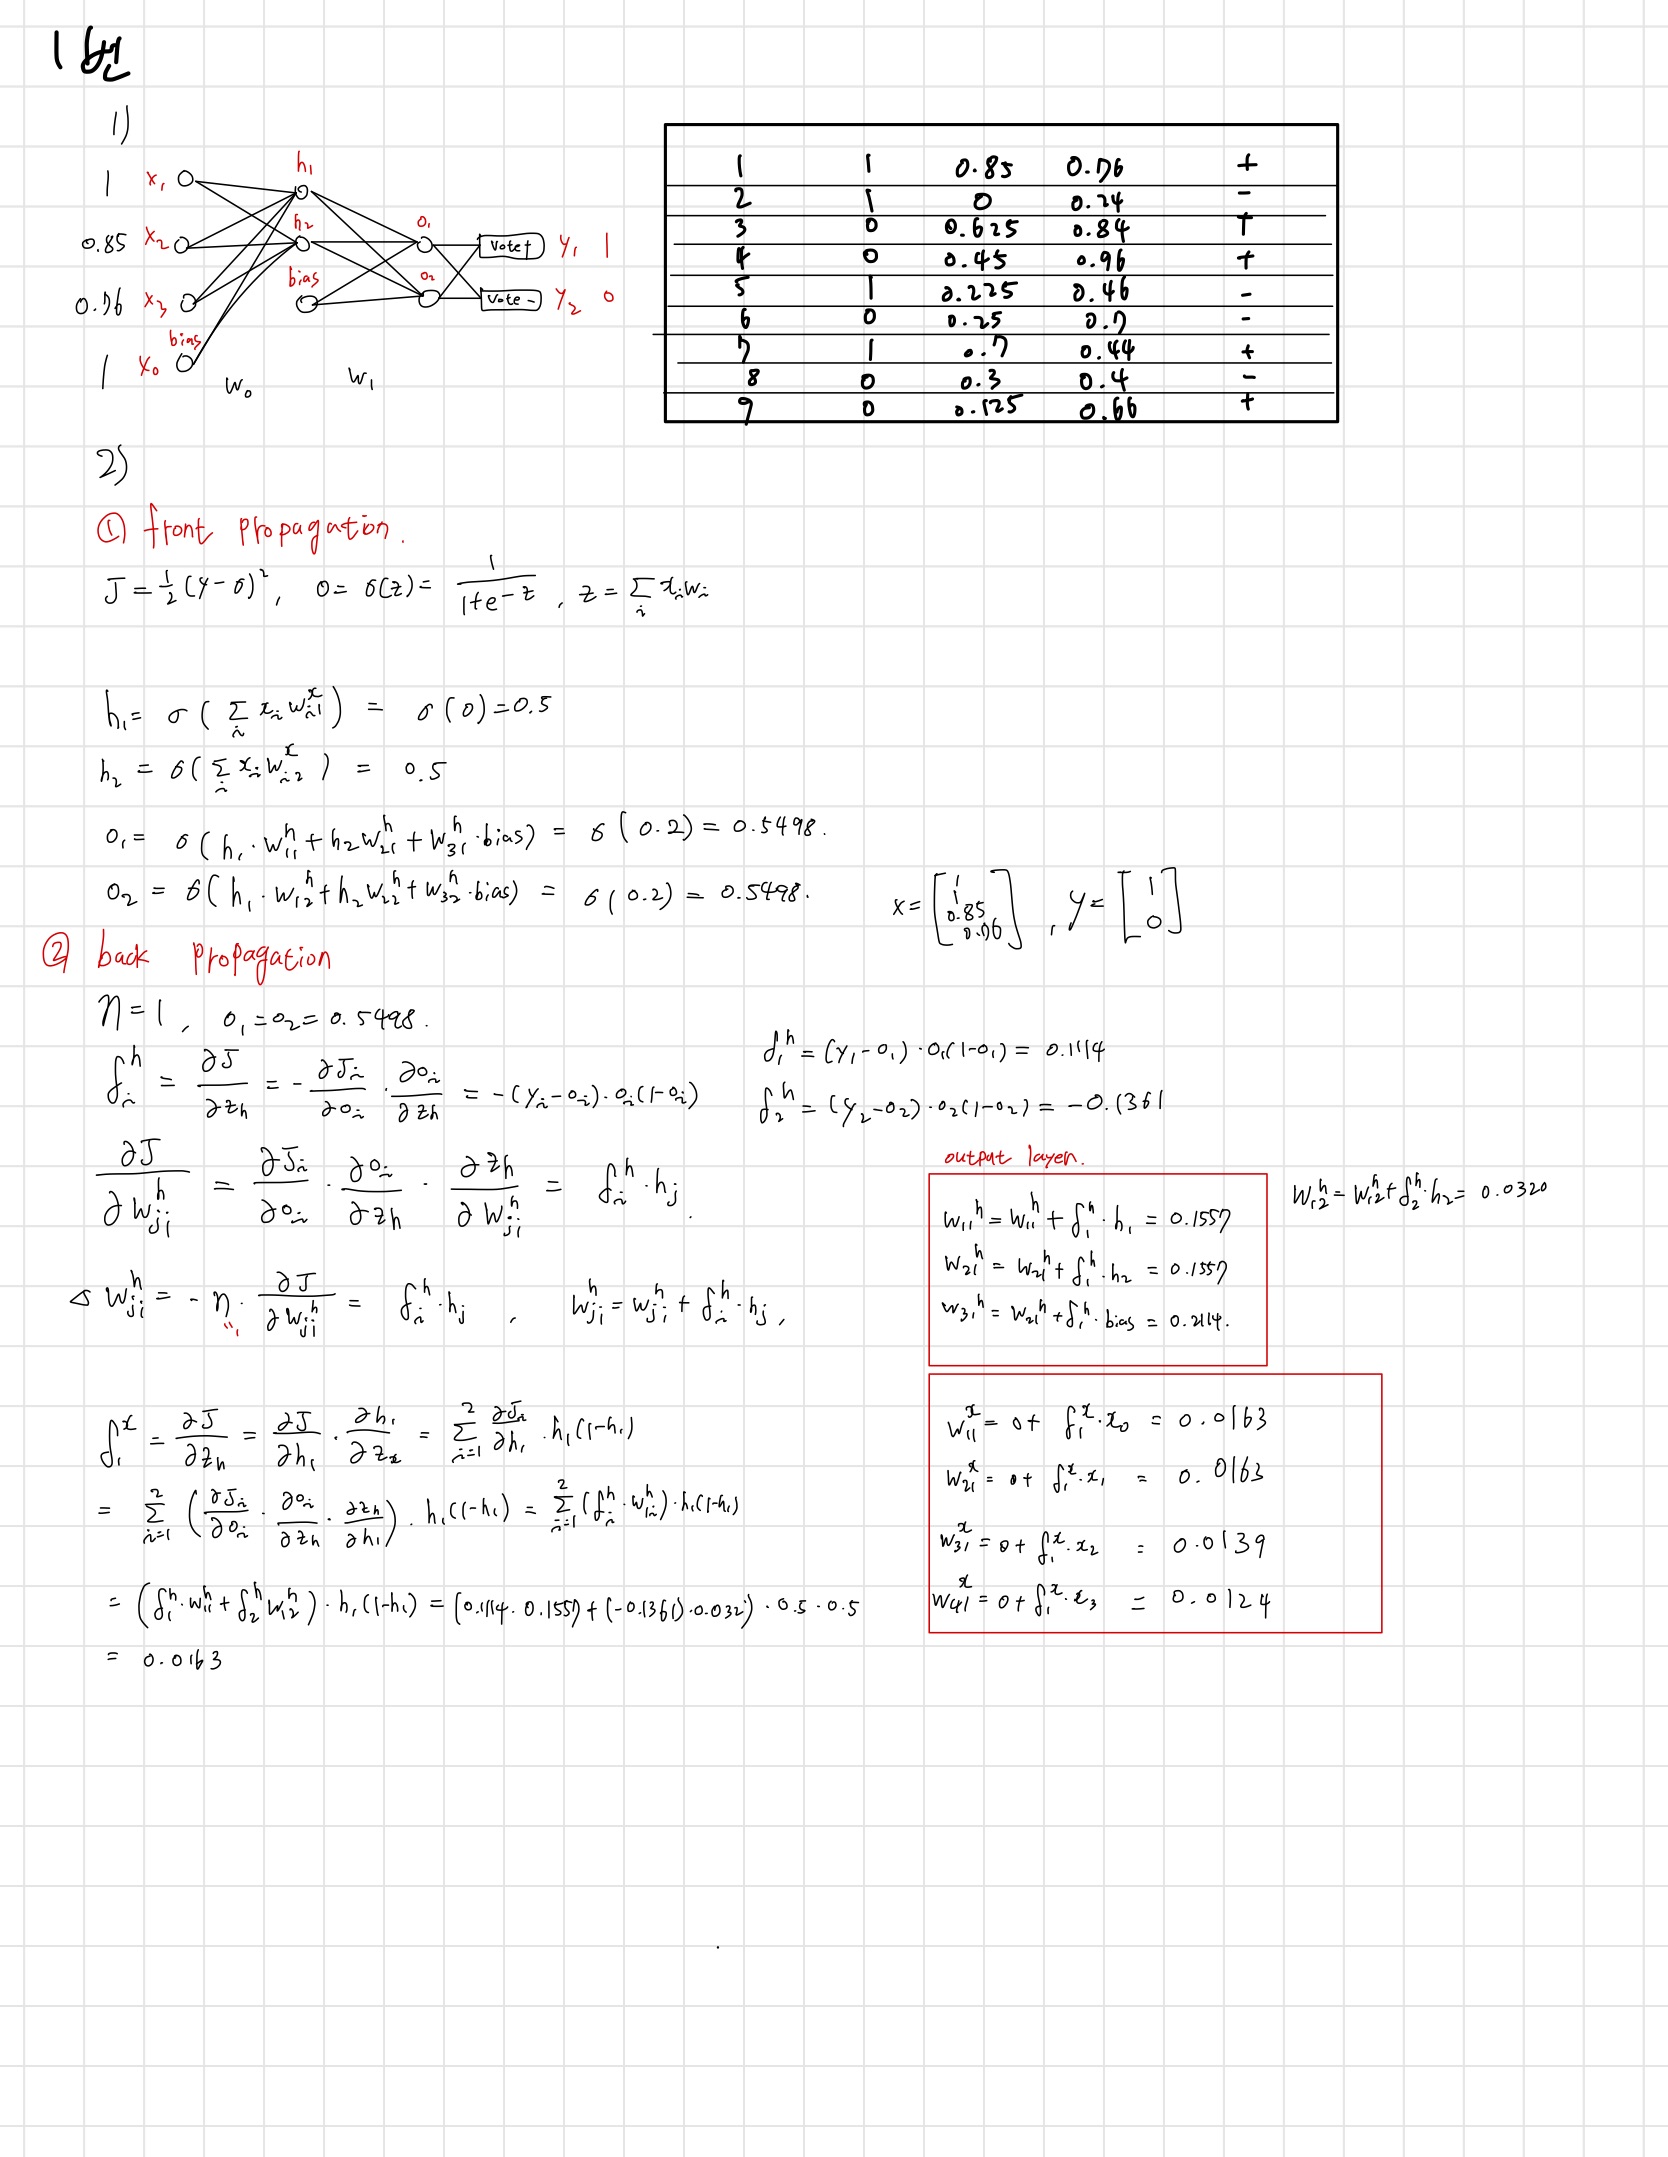 1번
1)
h₁
1 x₁
h₂ o₁
0.85 x₂ Vote+ y₁ 1
bias o₂
0.76 x₃ Vote- y₂ 0
bias
1 x₀
w₀ w₁
1 1 0.85 0.76 +
2 1 0 0.24 -
3 0 0.625 0.84 +
4 0 0.45 0.96 +
5 1 0.225 0.46 -
6 0 0.25 0.7 -
7 1 0.7 0.44 +
8 0 0.3 0.4 -
9 0 0.125 0.66 +
2)
① front propagation.
J = 1/2 (y-o)², o = σ(z) = 1/(1+e^-z), z = Σ_i x_i w_i
h₁ = σ( Σ_i x_i w_i1^x ) = σ(0) = 0.5
h₂ = σ( Σ_i x_i w_i2^x ) = 0.5
o₁ = σ( h₁·w₁₁^h + h₂w₂₁^h + w₃₁^h·bias) = σ(0.2) = 0.5498.
o₂ = σ( h₁·w₁₂^h + h₂w₂₂^h + w₃₂^h·bias) = σ(0.2) = 0.5498.
x = [1 1 0.85 0.76], y = [1 0]
② back propagation
η = 1, o₁ = o₂ = 0.5498.
δ_i^h = ∂J/∂z_h = - ∂J_i/∂o_i · ∂o_i/∂z_h = -(y_i-o_i)·o_i(1-o_i)
δ₁^h = (y₁-o₁)·o₁(1-o₁) = 0.1114
δ₂^h = (y₂-o₂)·o₂(1-o₂) = -0.1361
∂J/∂w_ji^h = ∂J_i/∂o_i · ∂o_i/∂z_h · ∂z_h/∂w_ji^h = δ_i^h·h_j.
△w_ji^h = -η·∂J/∂w_ji^h = δ_i^h·h_j, w_ji^h = w_ji^h + δ_i^h·h_j,
1
output layer.
w₁₁^h = w₁₁^h + δ₁^h·h₁ = 0.1557
w₂₁^h = w₂₁^h + δ₁^h·h₂ = 0.1557
w₃₁^h = w₂₁^h + δ₁^h·bias = 0.2114.
w₁₂^h = w₁₂^h + δ₂^h·h₂ = 0.0320
δ₁^x = ∂J/∂z_h = ∂J/∂h₁ · ∂h₁/∂z_x = Σ_{i=1}^2 ∂J_i/∂h₁ · h₁(1-h₁)
= Σ_{i=1}^2 (∂J_i/∂o_i · ∂o_i/∂z_h · ∂z_h/∂h₁) · h₁(1-h₁) = Σ_{i=1}^2 (δ_i^h·w_1i^h)·h₁(1-h₁)
= (δ₁^h·w₁₁^h + δ₂^h w₁₂^h)·h₁(1-h₁) = (0.1114·0.1557+(-0.1361)·0.032)·0.5·0.5
= 0.0163
w₁₁^x = 0 + δ₁^x·x₀ = 0.0163
w₂₁^x = 0 + δ₁^x·x₁ = 0.0163
w₃₁^x = 0 + δ₁^x·x₂ = 0.0139
w₄₁^x = 0 + δ₁^x·x₃ = 0.0124